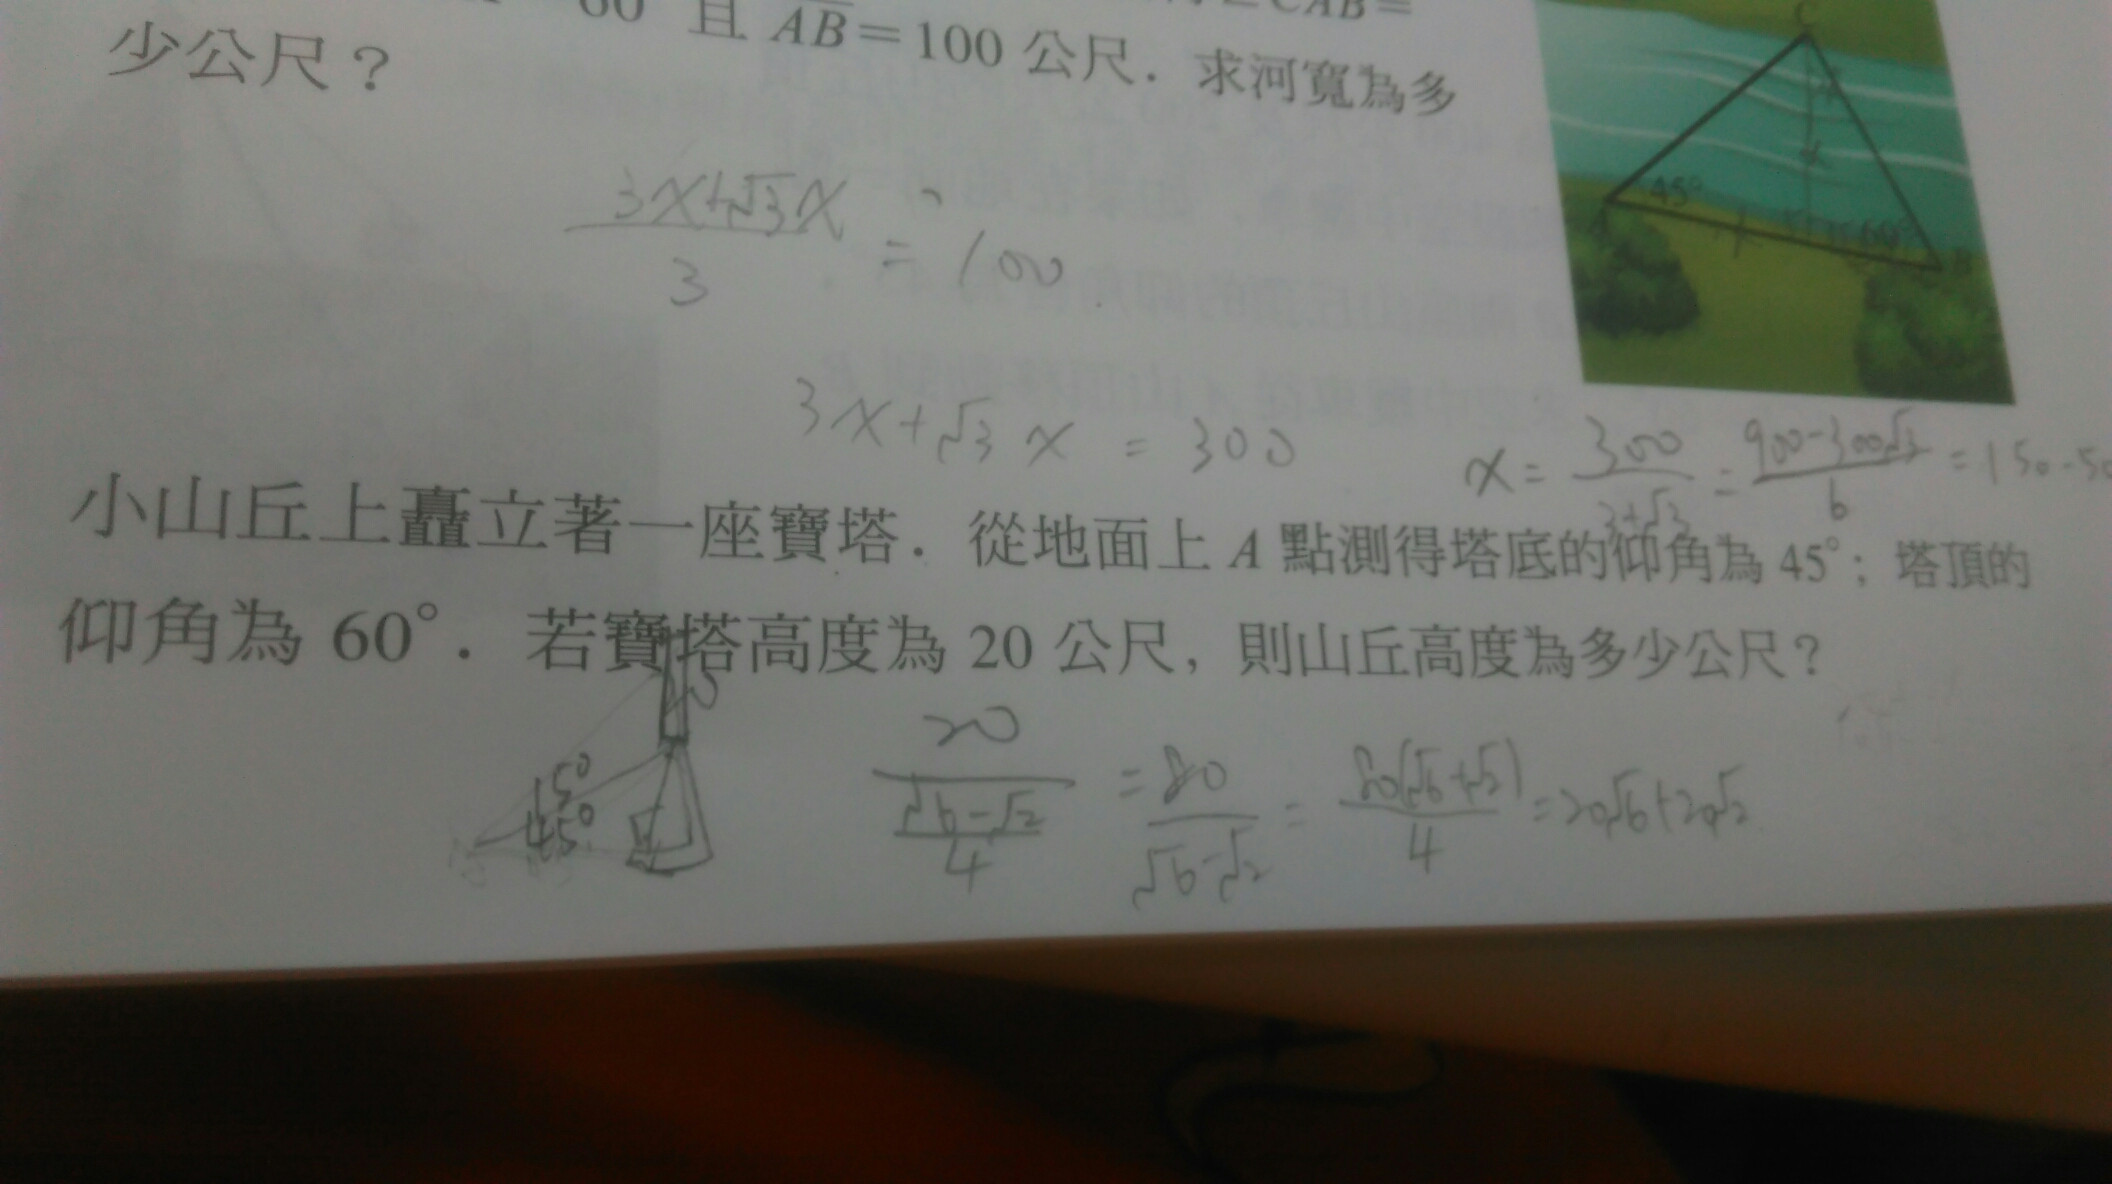 60° 且 AB=100 公尺．求河寬為多
少公尺？
C
45°
60°
A
B
(3x+√3x)/3 = 100
3x+√3x = 300
x = 300/(3+√3) = (900-300√3)/6 = 150-50
小山丘上矗立著一座寶塔．從地面上 A 點測得塔底的仰角為 45°；塔頂的
仰角為 60°．若寶塔高度為 20 公尺，則山丘高度為多少公尺？
15°
45°
20/((√6-√2)/4) = 80/(√6-√2) = 80(√6+√2)/4 = 20√6+20√2